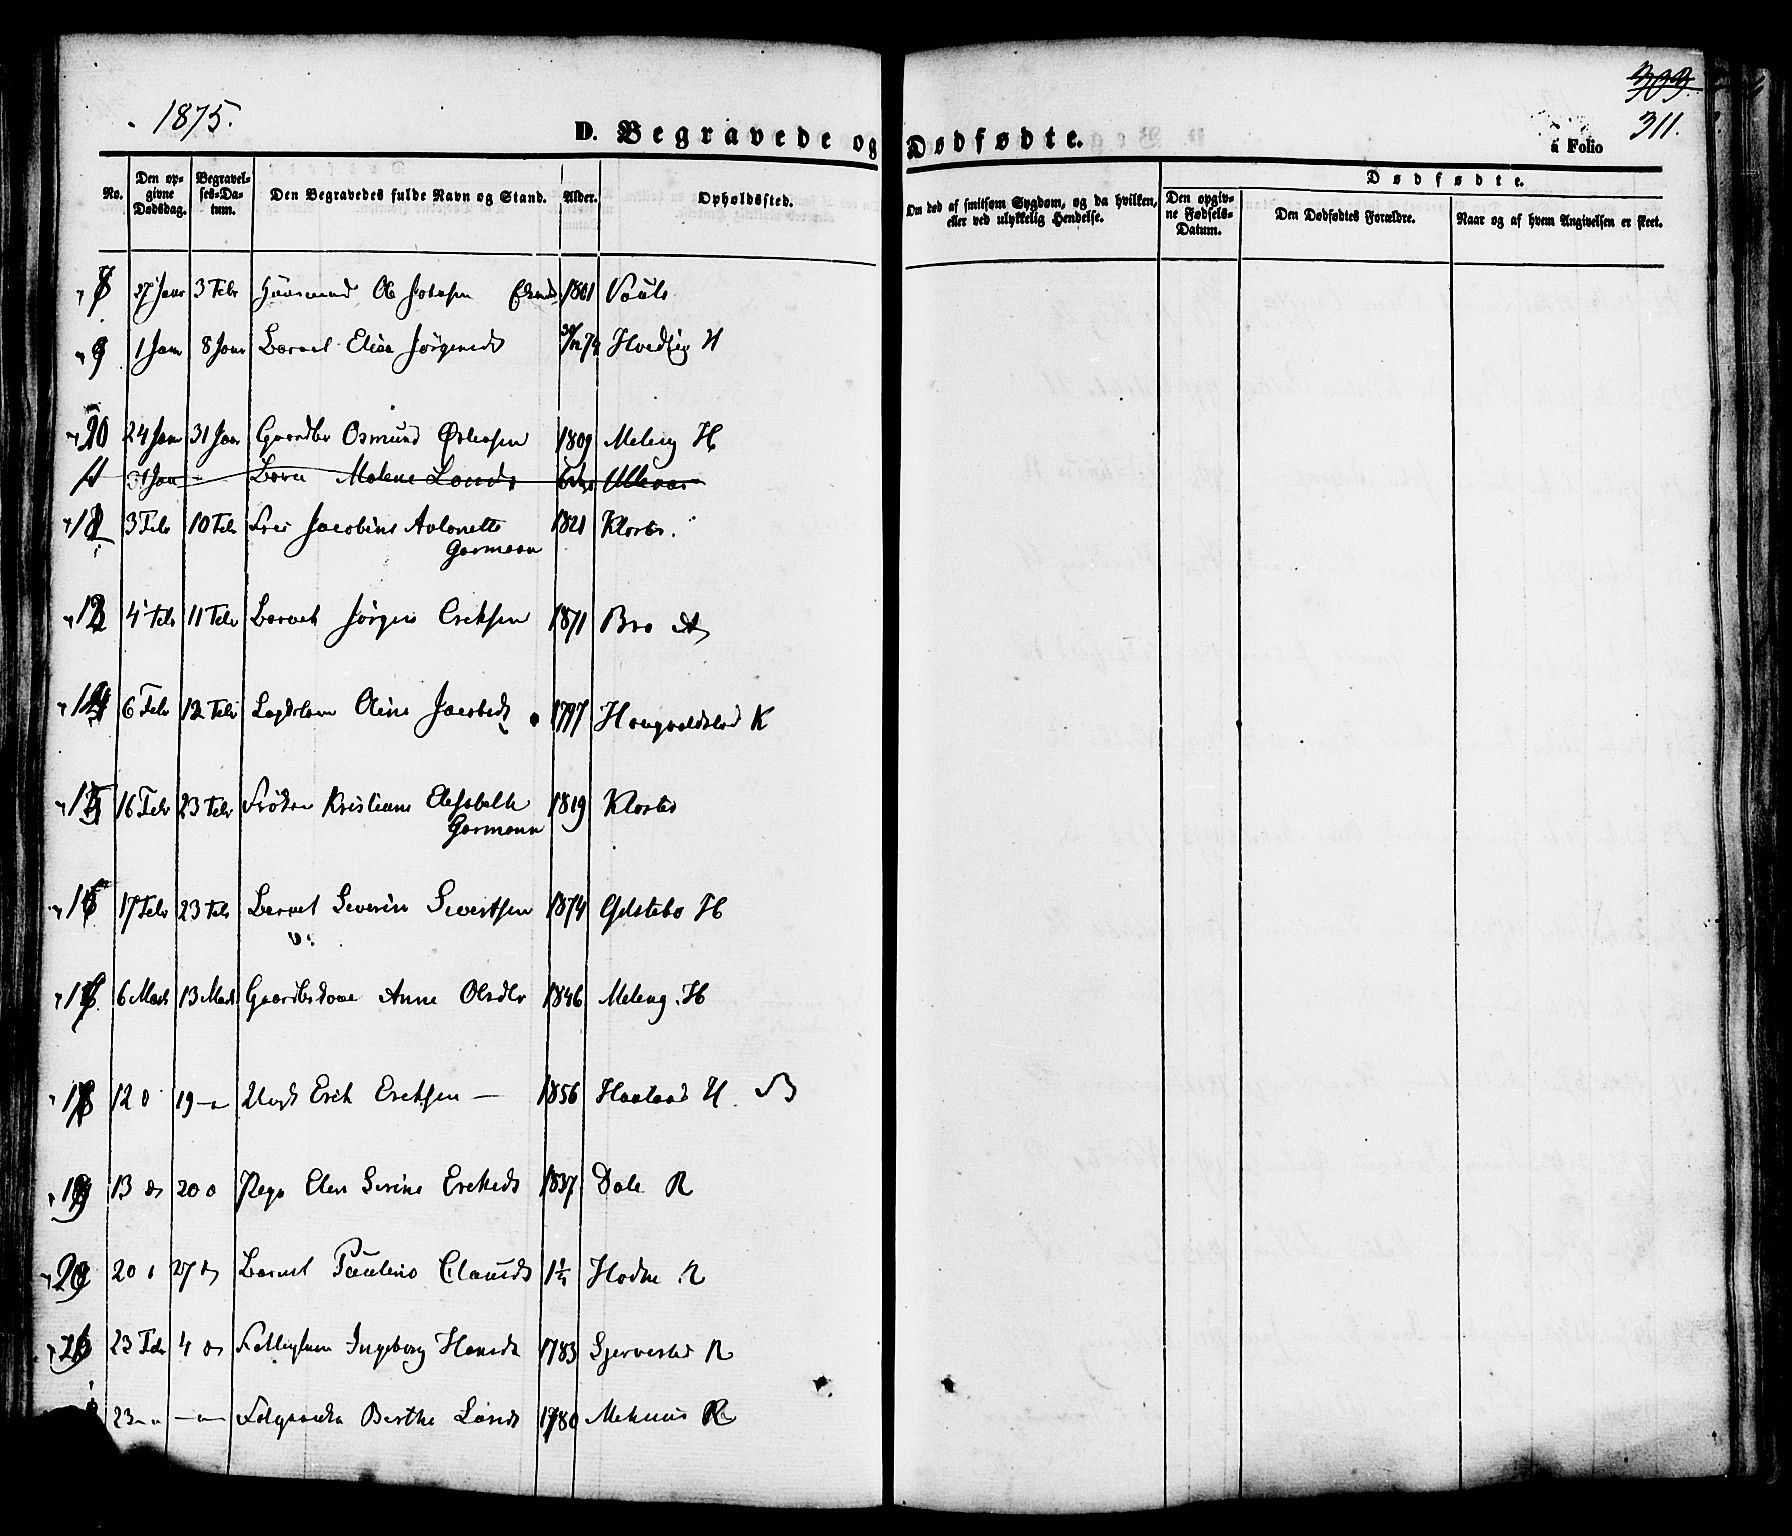 1875.
303.
311.
D. Begravede og Dødfødte.
à Folio
No.
Den opgivne Dødsdag.
Begravelses-Datum.
Den Begravedes fulde Navn og Stand.
Alder.
Opholdssted.
Om død af smitsom Sygdom, og da hvilken, eller ved ulykkelig Hendelse.
Dødfødte.
Den opgivne Fødsels-Datum.
Den Dødfødtes Forældre.
Naar og af hvem Angivelsen er skeet.
8 27 Janr 3 Febr Huusmand Ole Johnsen 1801
9 1 Janr 8 Janr Barnet Elisa Jørgensdt 30/12 74 H
10 24 Janr 31 Janr Gaardbr Osmund Østensen 1809 Meling H
11 31 Jan Barn Malene Larsdt
12 3 Febr 10 Febr Frk Jacobine Antonette 1821 Kloster.
Garmann
13 4 Febr 11 Febr Barnet Jørgen Eriksen 1871 Bro A
14 6 Febr 12 Febr Lægdslem Oline Jacobsdt 1797 Haugvaldstad K
15 16 Febr 23 Febr Frøken Kristiane Elisabeth 1819 Kloster
Garmann
16 17 Febr 23 Febr Barnet Severin Sivertsen 1874 H
17 6 Marts 13 Marts Gaardbrkone Anne Olsdtr 1846 Meling H
18 12 19 Ungk Erik Eriksen 1856 Haaland H
19 13 20 Pege Elen Serine Eriksdt 1837 Dale R
20 20 27 Barnet Pauline Clausdt 1 1/4 Hodne R
21 23 Febr 4 Fattiglem Ingeborg Hansdt 1783 R
23 Berthe Larsdt 1780 R